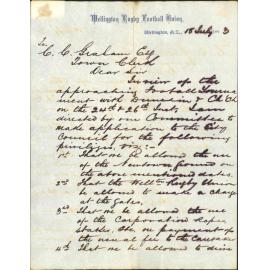 Wellington Rugby Football Union,
Wellington, N.Z., 18 July 3
To
C. C. Graham Esq
Town Clerk
Dear Sir
In view of the
approaching Football Tourna
ment with Dunedin & Ch Ch
on the 24th & 26th Inst, I am
directed by our Committee to
make application to the City
Council for the following
privileges, viz:-
1st That we be allowed the use
of the Newtown ground on
the above mentioned dates.
2nd That the Welltn Rugby Union
be allowed to make a charge
at the gates.
3rd That we be allowed the use
of the Corporation
on payment of
the usual fee to the Caretaker
4th That we be allowed to